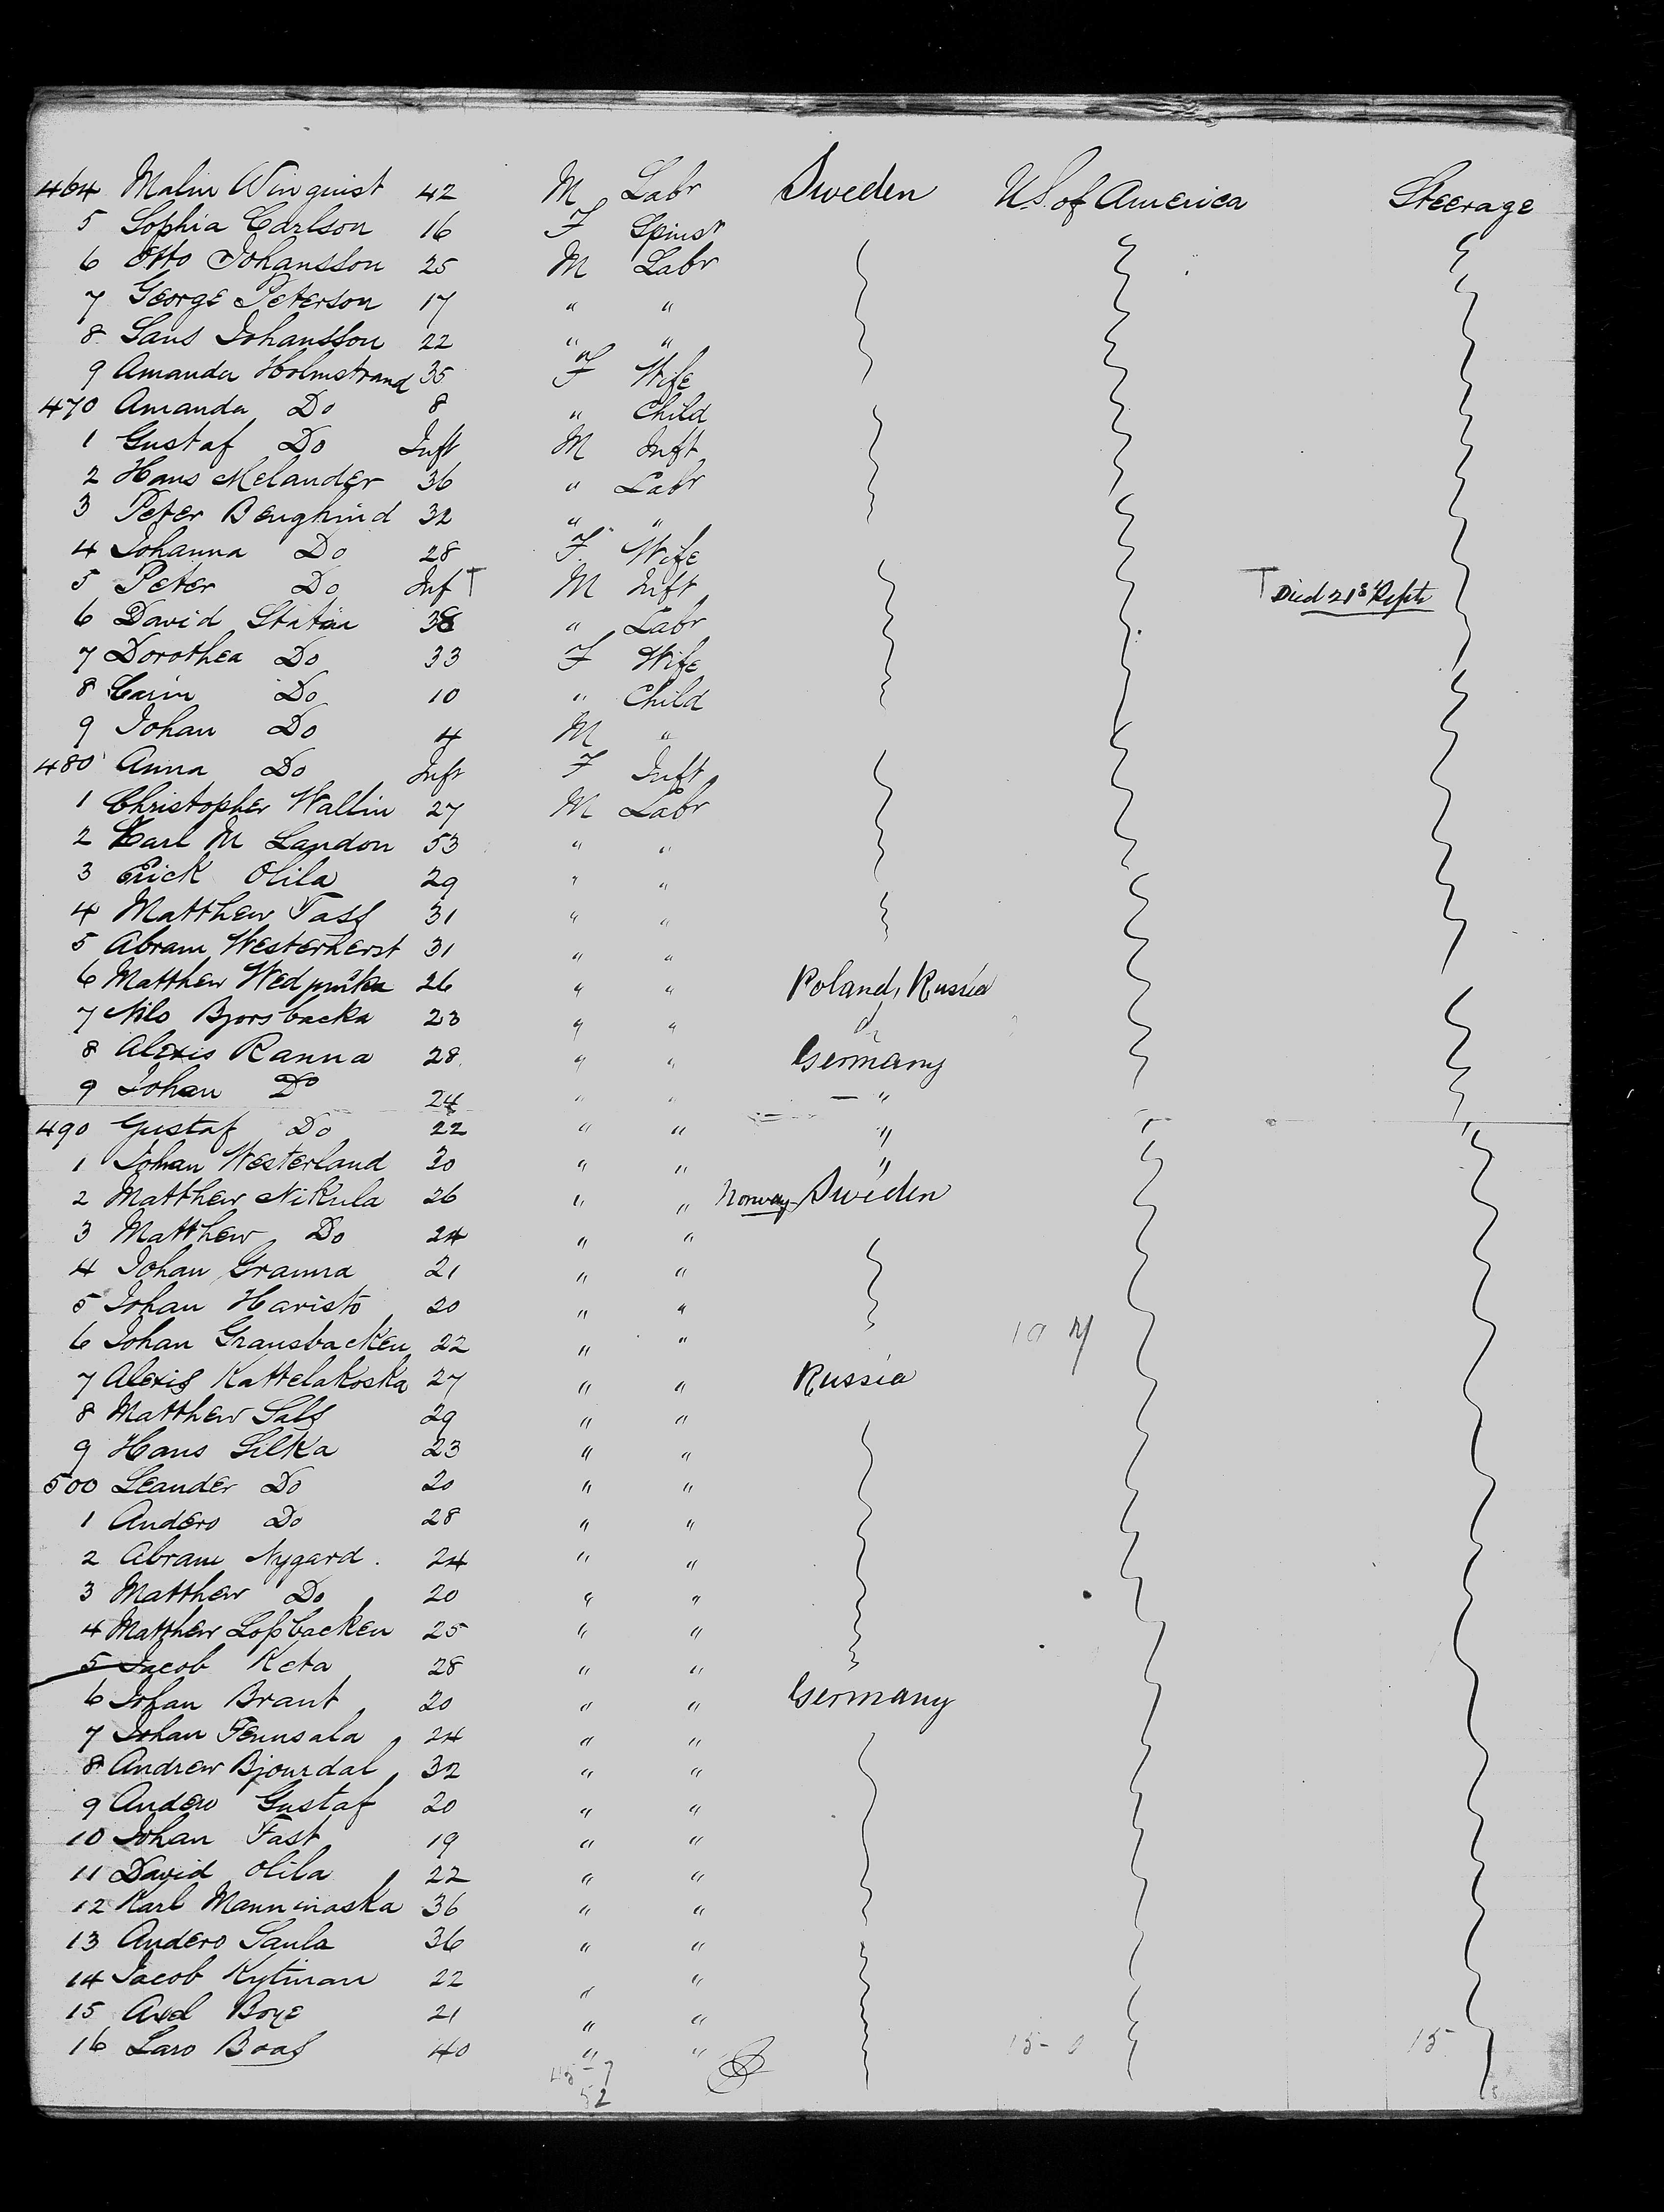 464 Malin Winquist 42 M Labr Sweden U.S. of America Steerage
5 Sophia Carlson 16 F Spinsr
6 Otto Johansson 25 M Labr
7 George Peterson 17 " "
8 Lans Johansson 22 " "
9 Amanda Holmstrand 35 F Wife
470 Amanda Do 8 " Child
1 Gustaf Do Inft M Inft
2 Hans Melander 36 " Labr
3 Peter Benghind 32 " "
4 Johanna Do 28 F Wife
5 Peter Do Inf T M Inft T Died 21st Septr
6 David 38 " Labr
7 Dorothea Do 33 F Wife
8 Carin Do 10 " Child
9 Johan Do 4 M "
480 Anna Do Inft F Inft
1 Christopher Wallin 27 M Labr
2 Carl M Landon 53 " "
3 Erick Olila 29 " "
4 Matthew Tass 31 " "
5 Abram Westerherst 31 " "
6 Matthew 26 " " Poland, Russia
7 Nilo Bjorsbacka 23 " "
8 Alexis Ranna 28 " " Germany
9 Johan Do 24 " " "
490 Gustaf Do 22 " " "
1 Johan Westerland 30 " " "
2 Matthew Nikula 26 " " Norway Sweden
3 Matthew Do 24 " "
4 Johan Granna 21 " "
5 Johan Haristo 20 " "
6 Johan Gransbacken 22 " "
7 Alexis Kattelakoska 27 " " Russia
8 Matthew Sals 29 " "
9 Hans Silka 23 " "
500 Leander Do 20 " "
1 Anders Do 28 " "
2 Abram Nygard. 24 " "
3 Matthew Do 20 " "
4 Matthew Lossbacken 25 " "
5 Jacob Keta 28 " "
6 Johan Brant 20 " " Germany
7 Johan Fennsala 24 " "
8 Andrew Bjourdal 32 " "
9 Anders Gustaf 20 " "
10 Johan Fast 19 " "
11 David Olila 22 " "
12 Karl Manninaska 36 " "
13 Anders Saula 36 " "
14 Jacob Kytinan 22 " "
15 Axel Boye 21 " "
16 Lars Boas 40 " " 15-0 15
45-7
52